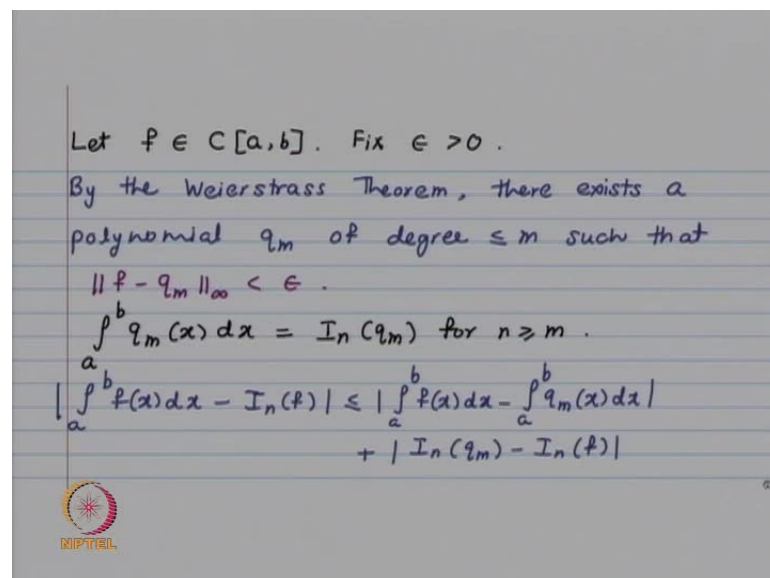 Let f ∈ C[a,b]. Fix ϵ >0.
By the Weierstrass Theorem, there exists a
polynomial q_m of degree ≤ m such that
|| f - q_m ||_∞ < ϵ.
∫_a^b q_m(x) dx = I_n(q_m) for n ≥ m.
| ∫_a^b f(x) dx - I_n(f) | ≤ | ∫_a^b f(x) dx - ∫_a^b q_m(x) dx |
+ | I_n(q_m) - I_n(f) |
NPTEL